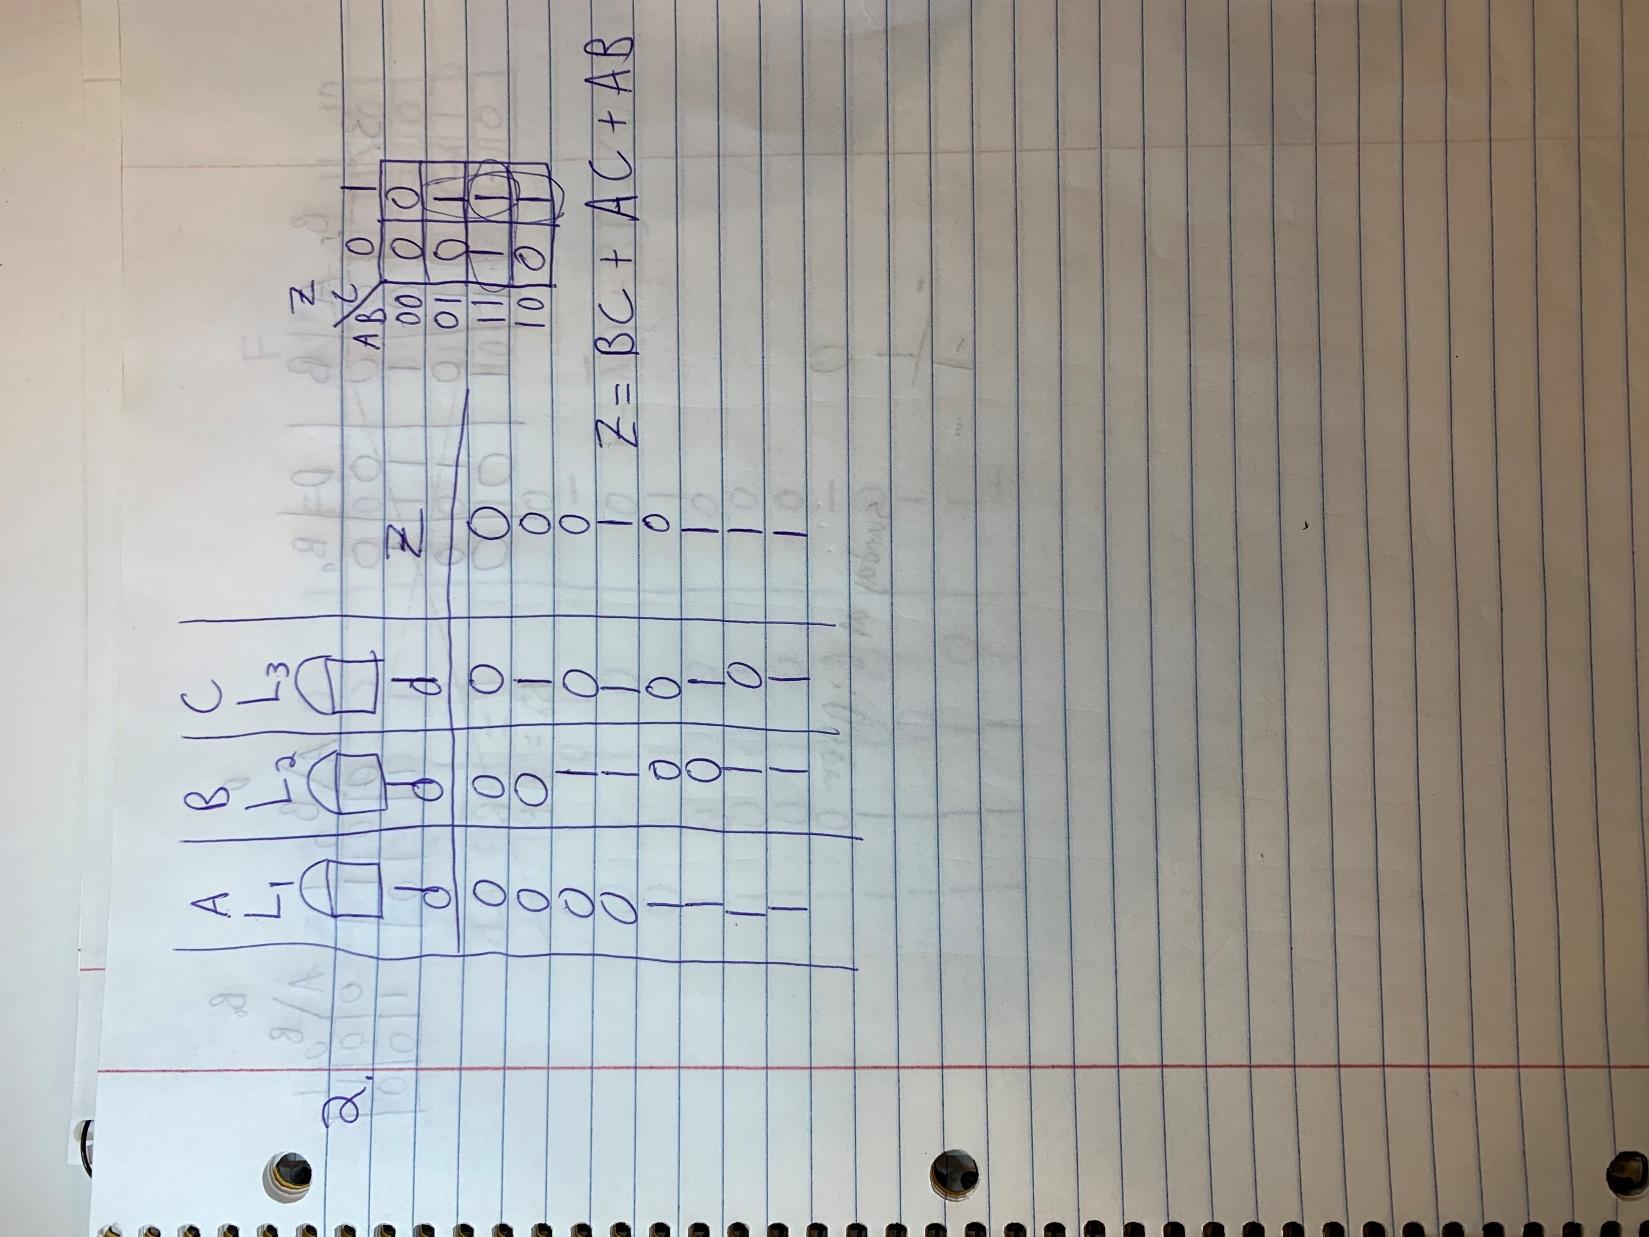 2.
A B C
L1 L2 L3
Z
0 0 0 0
0 0 1 0
0 1 0 0
0 1 1 1
1 0 0 0
1 0 1 1
1 1 0 1
1 1 1 1
Z
AB\C 0 1
00 0 0
01 0 1
11 1 1
10 0 1
Z = BC + AC + AB